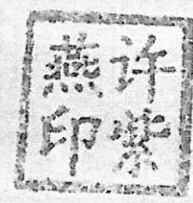 许紫
燕印